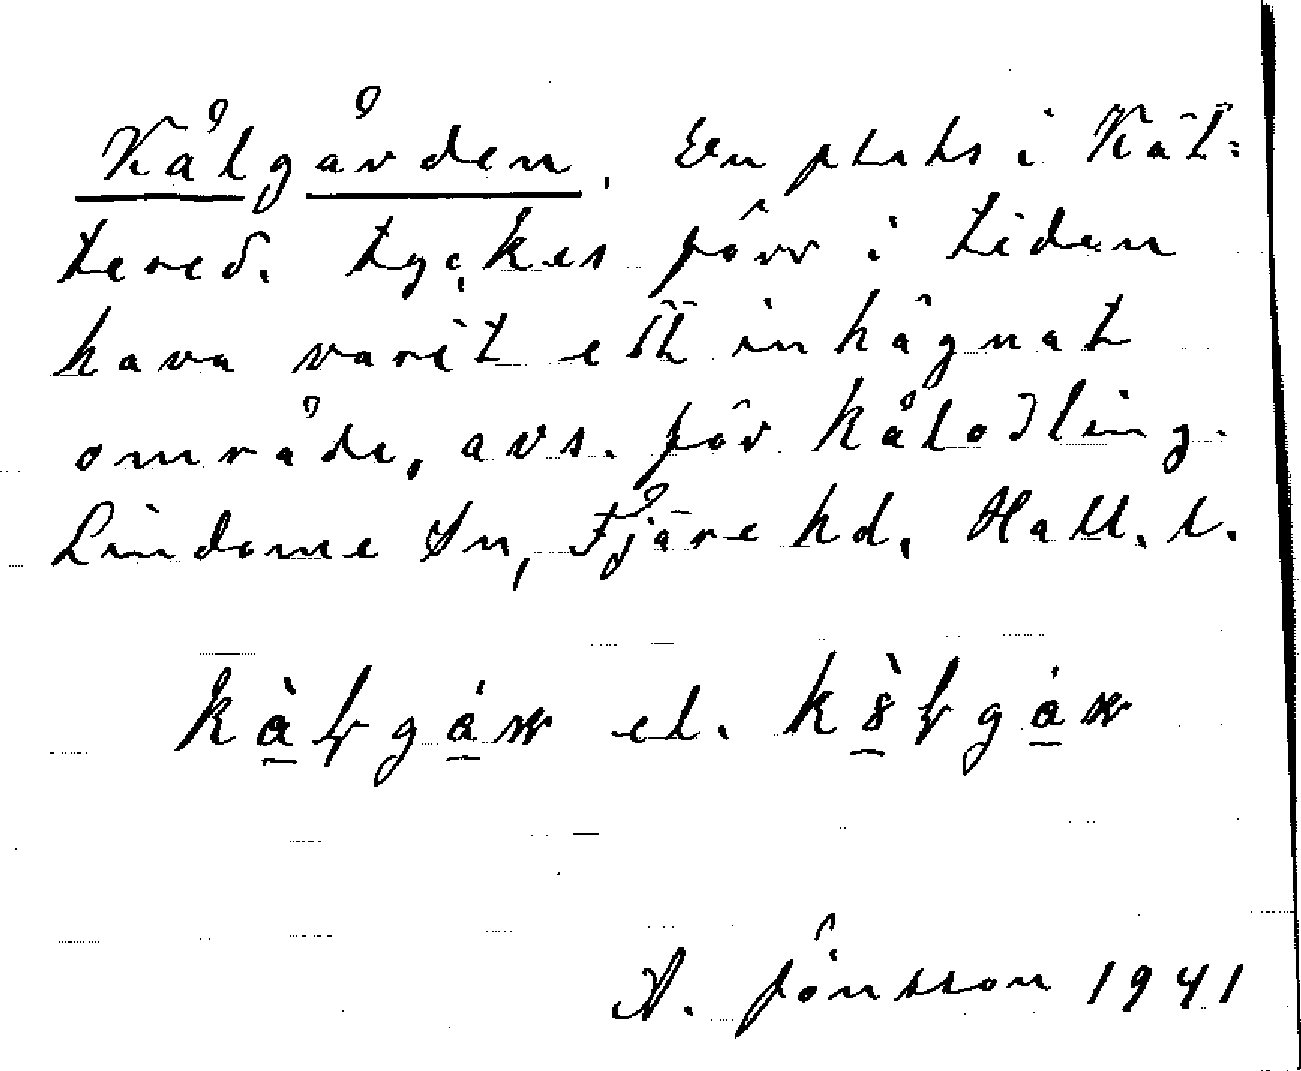 Kålgården. En plats i Käl=
tered. tyckes förr i tiden
hava varit ett inhägnat
område, avs. för kålodling.
Lindome sn, Fjäre hd, Hall. l.
el.
A. Jönsson 1941